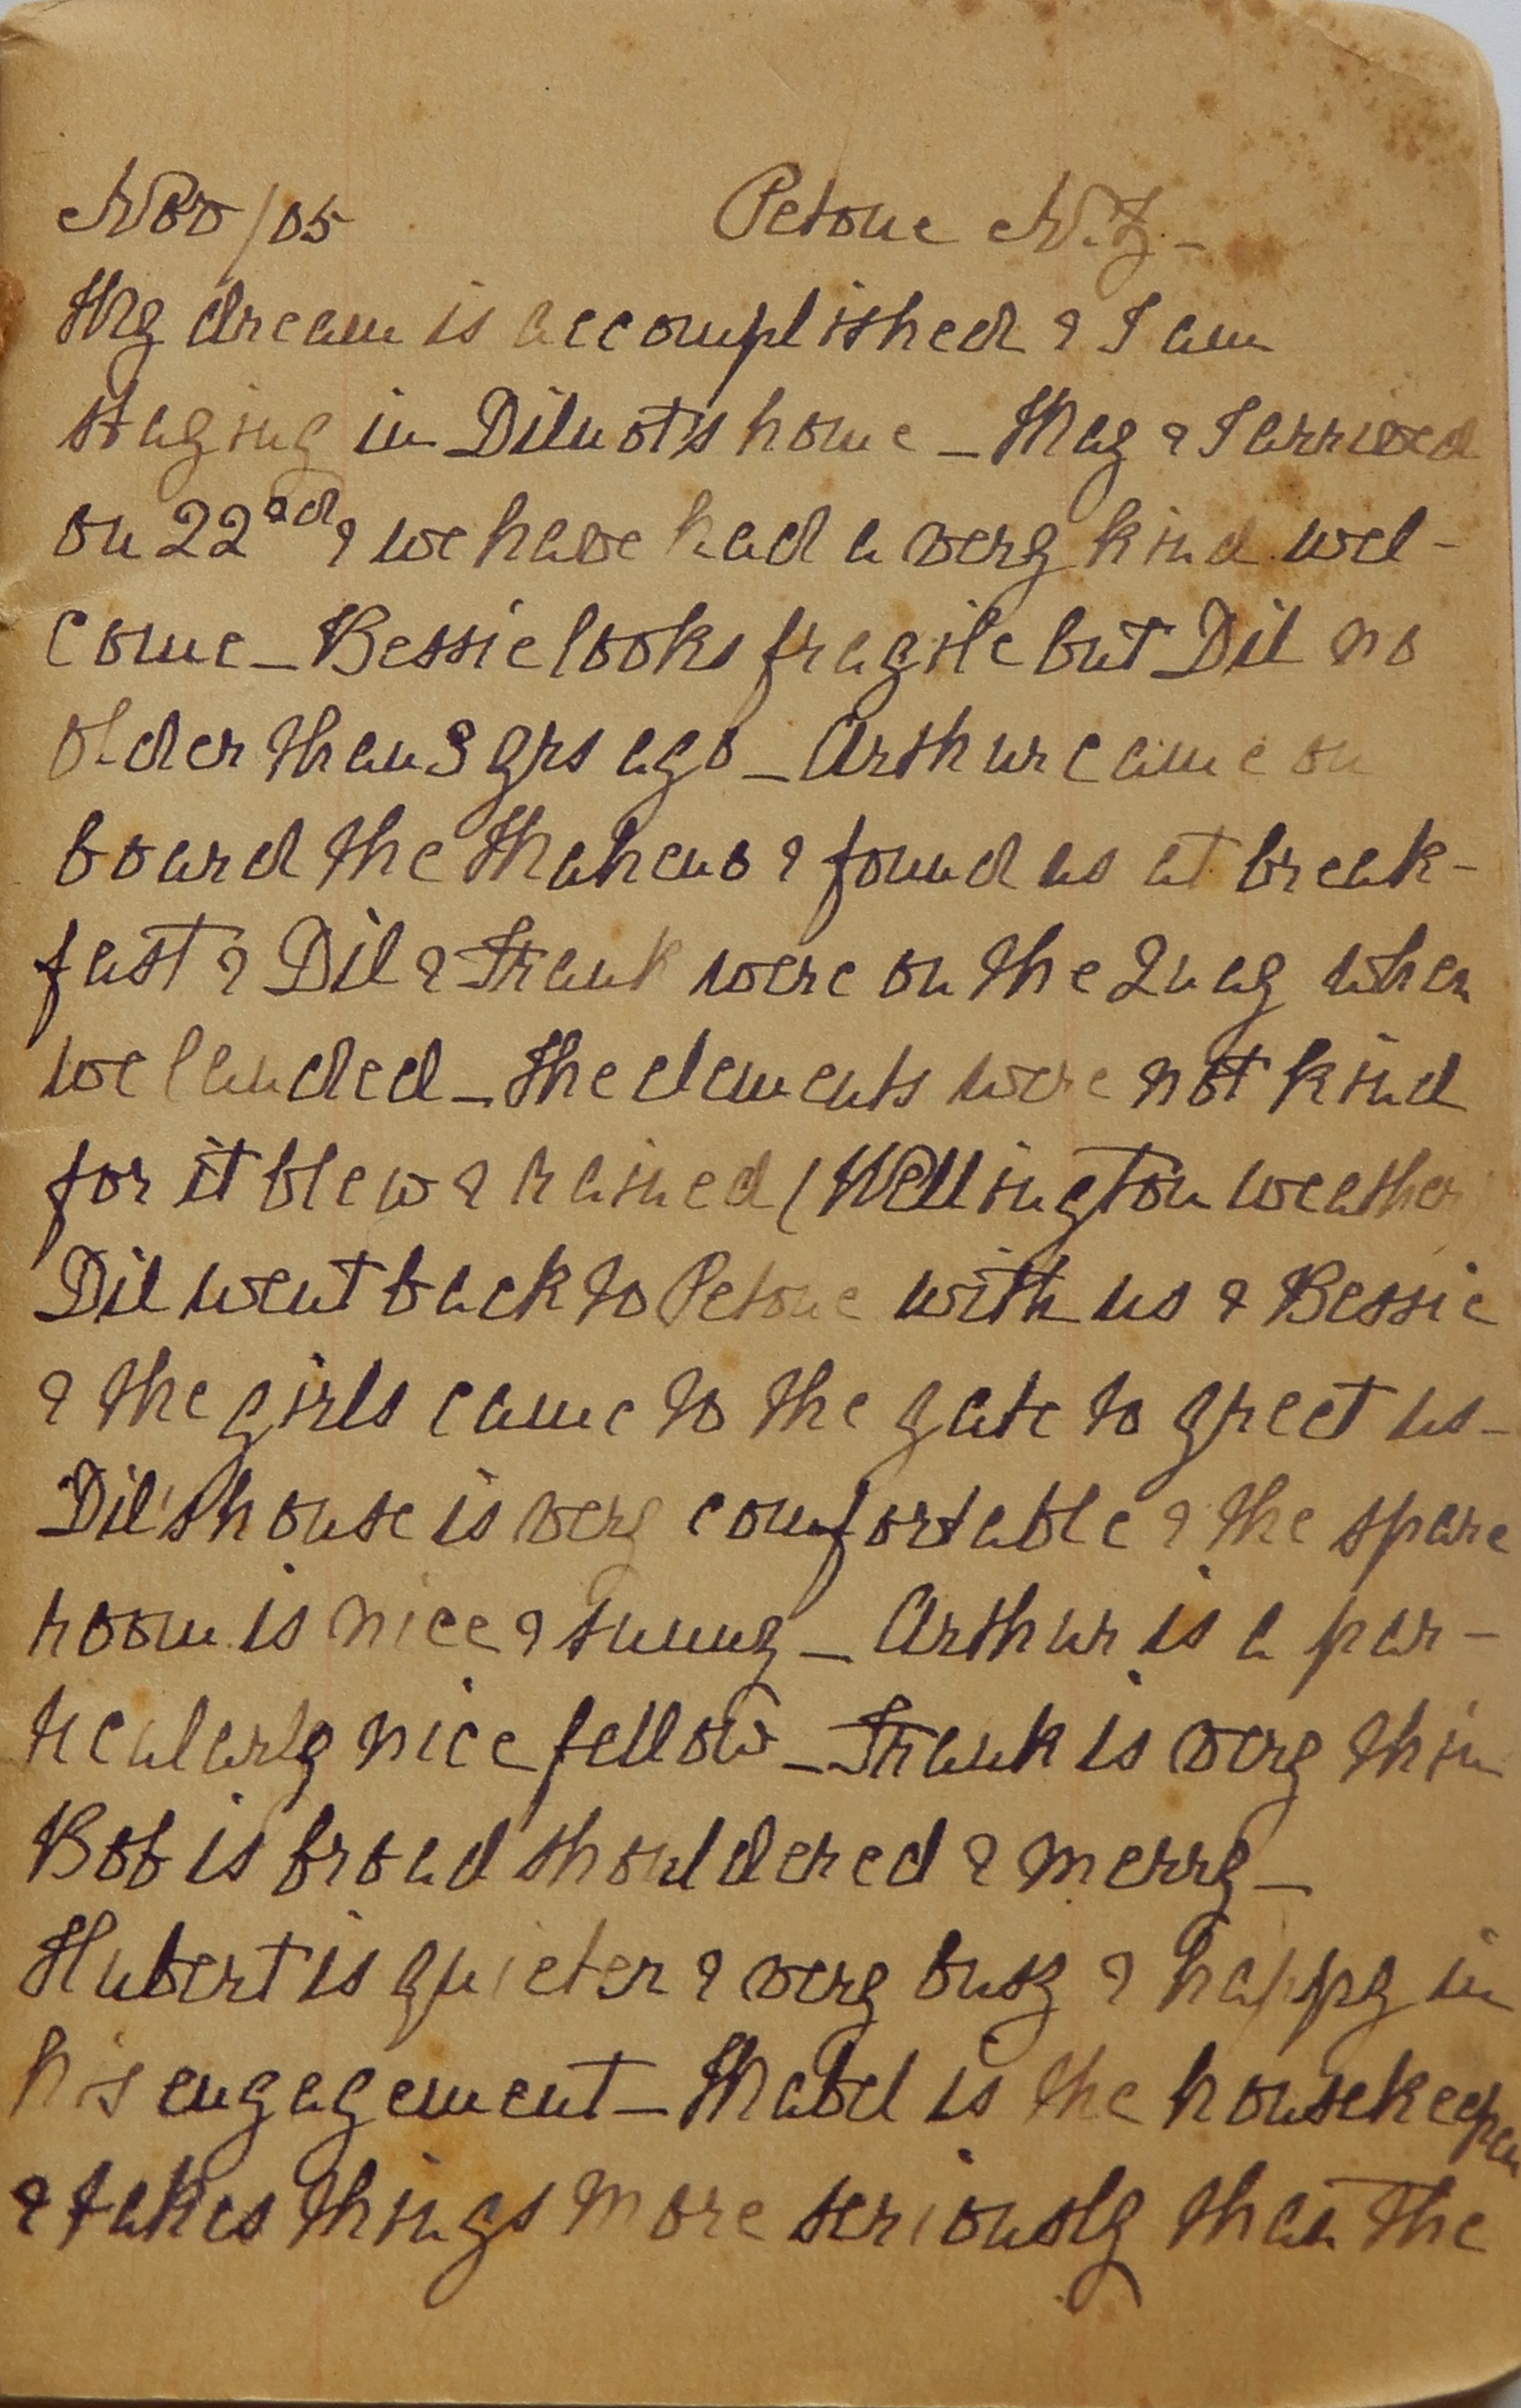 Nov/05 Petone N.Z-
My dream is accomplished & I am
staying in Dilnot's home - May & I arrived
on 22nd & we have had a very kind wel-
come - Bessie looks fragile but Dil no
older than 3 yrs ago - Arthur came on
board the Maheno & found us at break-
fast & Dil & Frank were on the Quay when
we landed - the elements were not kind
for it blew & rained (Wellington weather
Dil went back to Petone with us & Bessie
& the girls came to the gate to greet us -
Dil's house is very comfortable & the spare
room is nice & sunny - Arthur is a par-
ticularly nice fellow - Frank is very thin
Bob is broad shouldered & merry -
Hubert is quieter & very busy & happy in
his engagement - Mabel is the housekeeper
& takes things more seriously than the